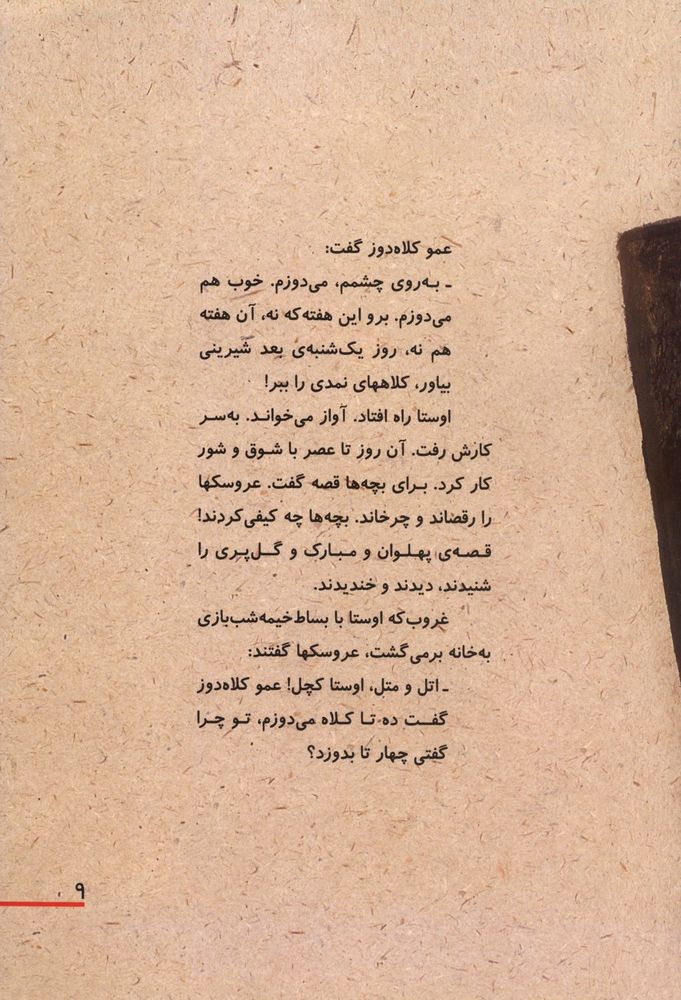 عمو کلاه‌دوز گفت:
ـ به‌روی چشمم، می‌دوزم. خوب هم
می‌دوزم. برو این هفته‌که نه، آن هفته
هم نه، روز یک‌شنبه‌ی بعد شیرینی
بیاور، کلاههای نمدی را ببر!
اوستا راه افتاد. آواز می‌خواند. به‌سر
کارش رفت. آن روز تا عصر با شوق و شور
کار کرد. برای بچه‌ها قصه گفت. عروسکها
را رقصاند و چرخاند. بچه‌ها چه کیفی‌کردند!
قصه‌ی پهلوان و مبارک و گل‌پری را
شنیدند، دیدند و خندیدند.
غروب‌که اوستا با بساط‌خیمه‌شب‌بازی
به‌خانه برمی‌گشت، عروسکها گفتند:
ـ اتل و متل، اوستا کچل! عمو کلاه‌دوز
گفت ده تا کلاه می‌دوزم، تو چرا
گفتی چهار تا بدوزد؟
۹